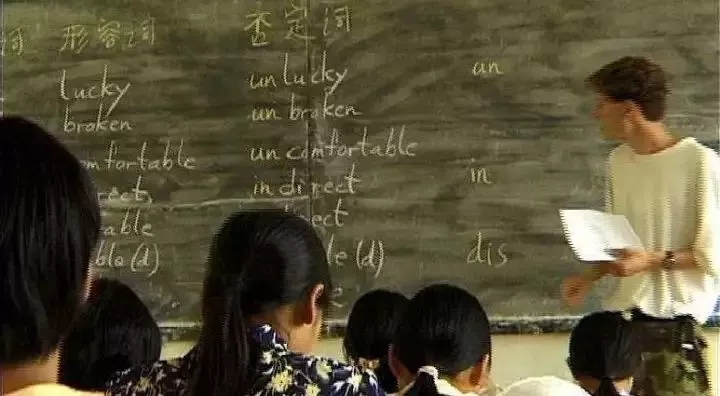 词 形容词 查定词
lucky unlucky un
broken unbroken
omfortable uncomfortable
rect indirect in
able ect
ble(d) le(d) dis